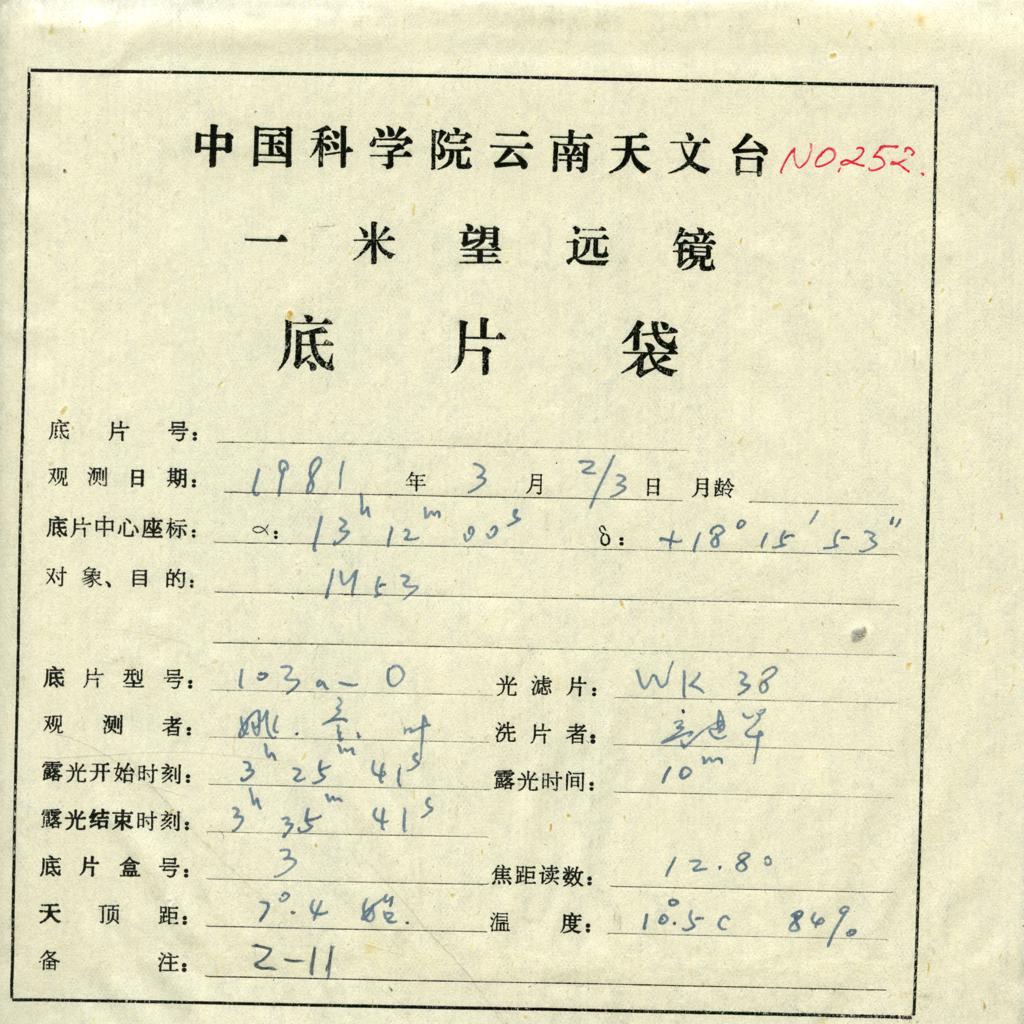 中国科学院云南天文台 NO.252.
一米望远镜
底片袋
底片号：
观测日期： 1981 年 3 月 2/3 日 月龄
底片中心座标： α： 13h 12m 00s δ： +18° 15′ 53″
对象、目的： M53
底片型号： 103a-O 光滤片： WK 38
观测者： 姚. 洗片者：
露光开始时刻： 3h 25m 41s 露光时间： 10m
露光结束时刻： 3h 35m 41s
底片盒号： 3 焦距读数： 12.80
天顶距： 7°.4 始. 温度： 10°.5 C 84%
备注： Z-11